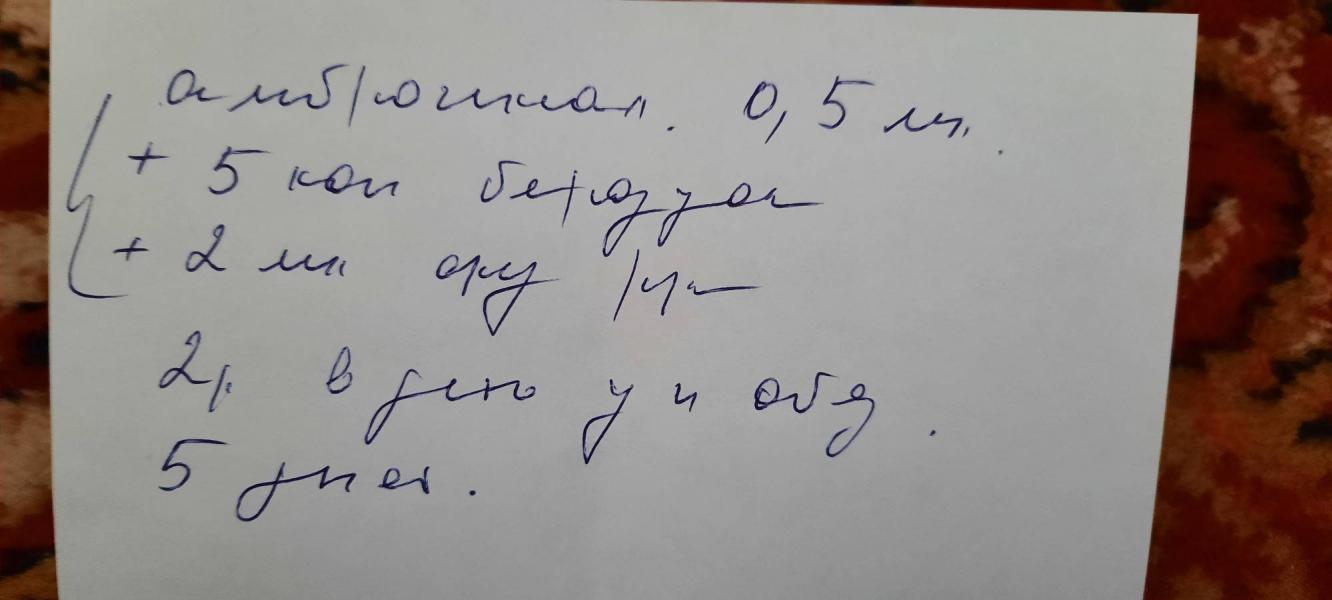 амброгкал. 0,5 мл.
+ 5 кап беродуал
+ 2 мл физ р-р
2р. в день у и обед.
5 дней.